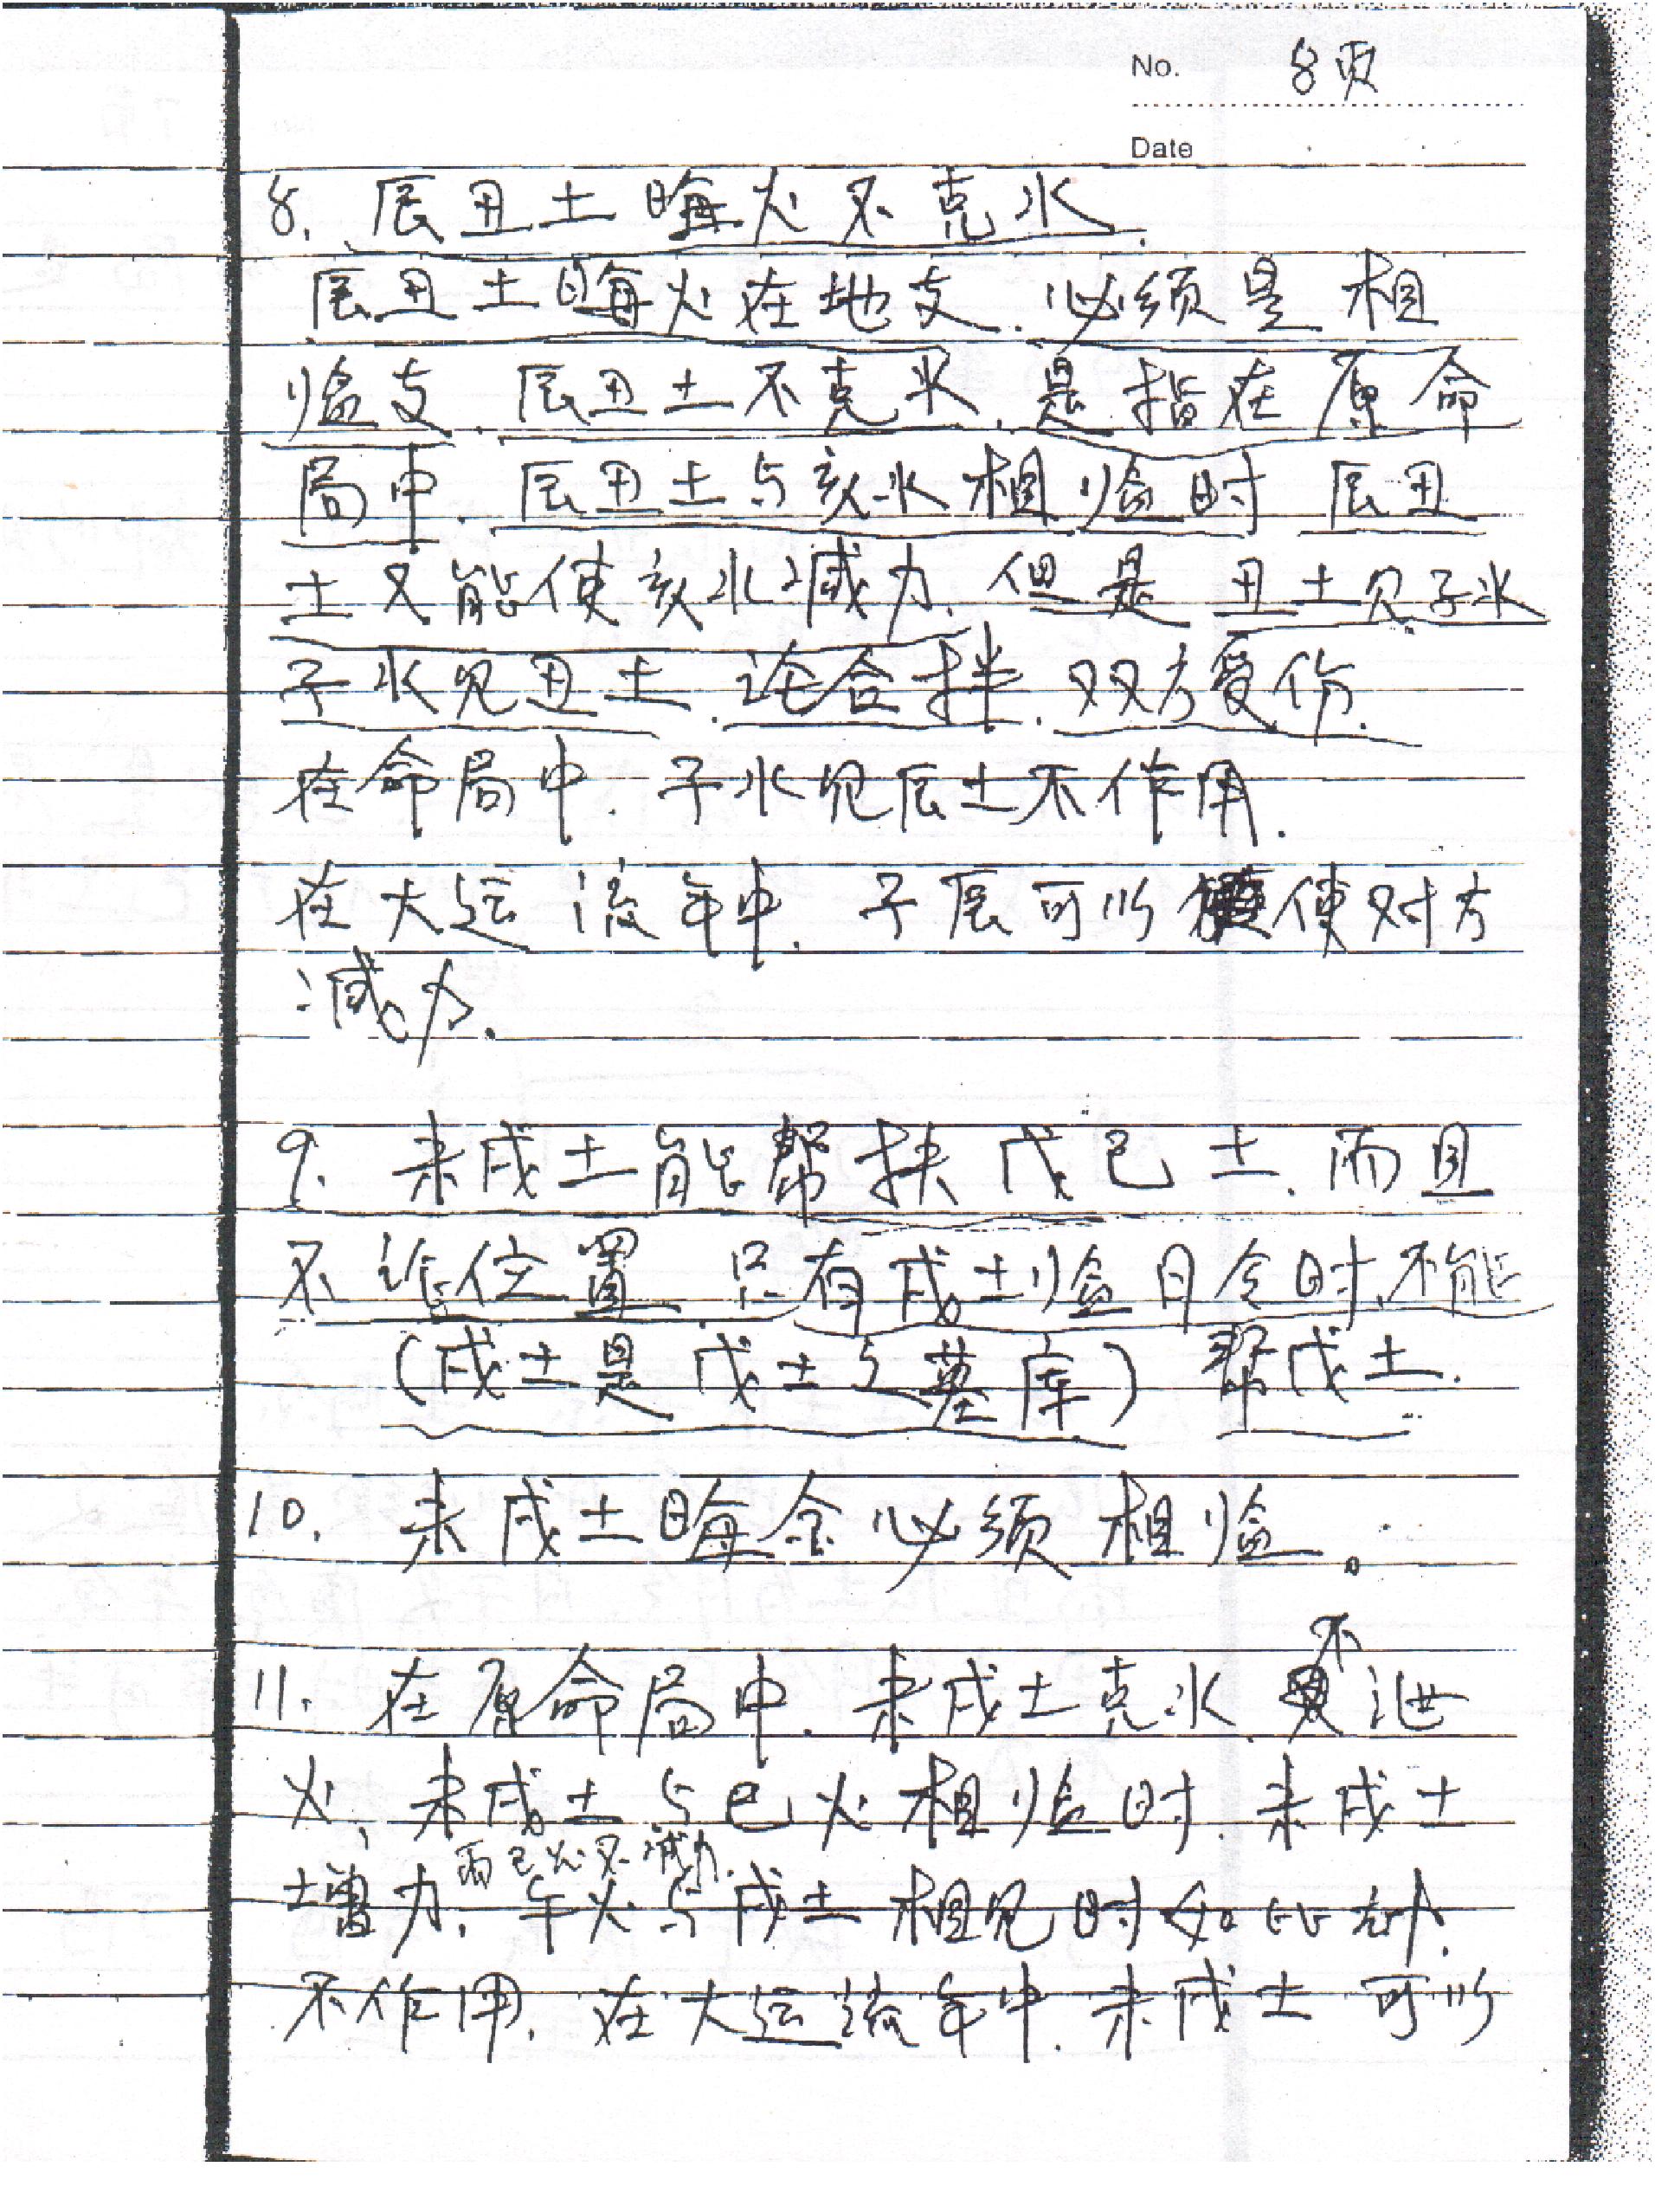 No. 8页
Date
8. 辰丑土晦火不克水.
辰丑土晦火在地支.必须是相
临支.辰丑土不克水.是指在原命
局中.辰丑土与亥水相临时 辰丑
土又能使亥水减力.但是 丑土见子水
子水见丑土.论合拌.双方受伤.
在命局中.子水见辰土不作用.
在大运流年中.子辰可以使对方
减力.
9. 未戌土能帮扶戊己土.而且
不论位置.只有戌土临月令时.不能
(戌土是戊土之墓库) 帮戊土.
10. 未戌土晦金必须相临。
11. 在原命局中.未戌土克水 不泄
火,未戌土与巳火相临时.未戌土
而巳火不减力.
增力.午火与戌土相见时如此断.
不作用.在大运流年中.未戌土可以